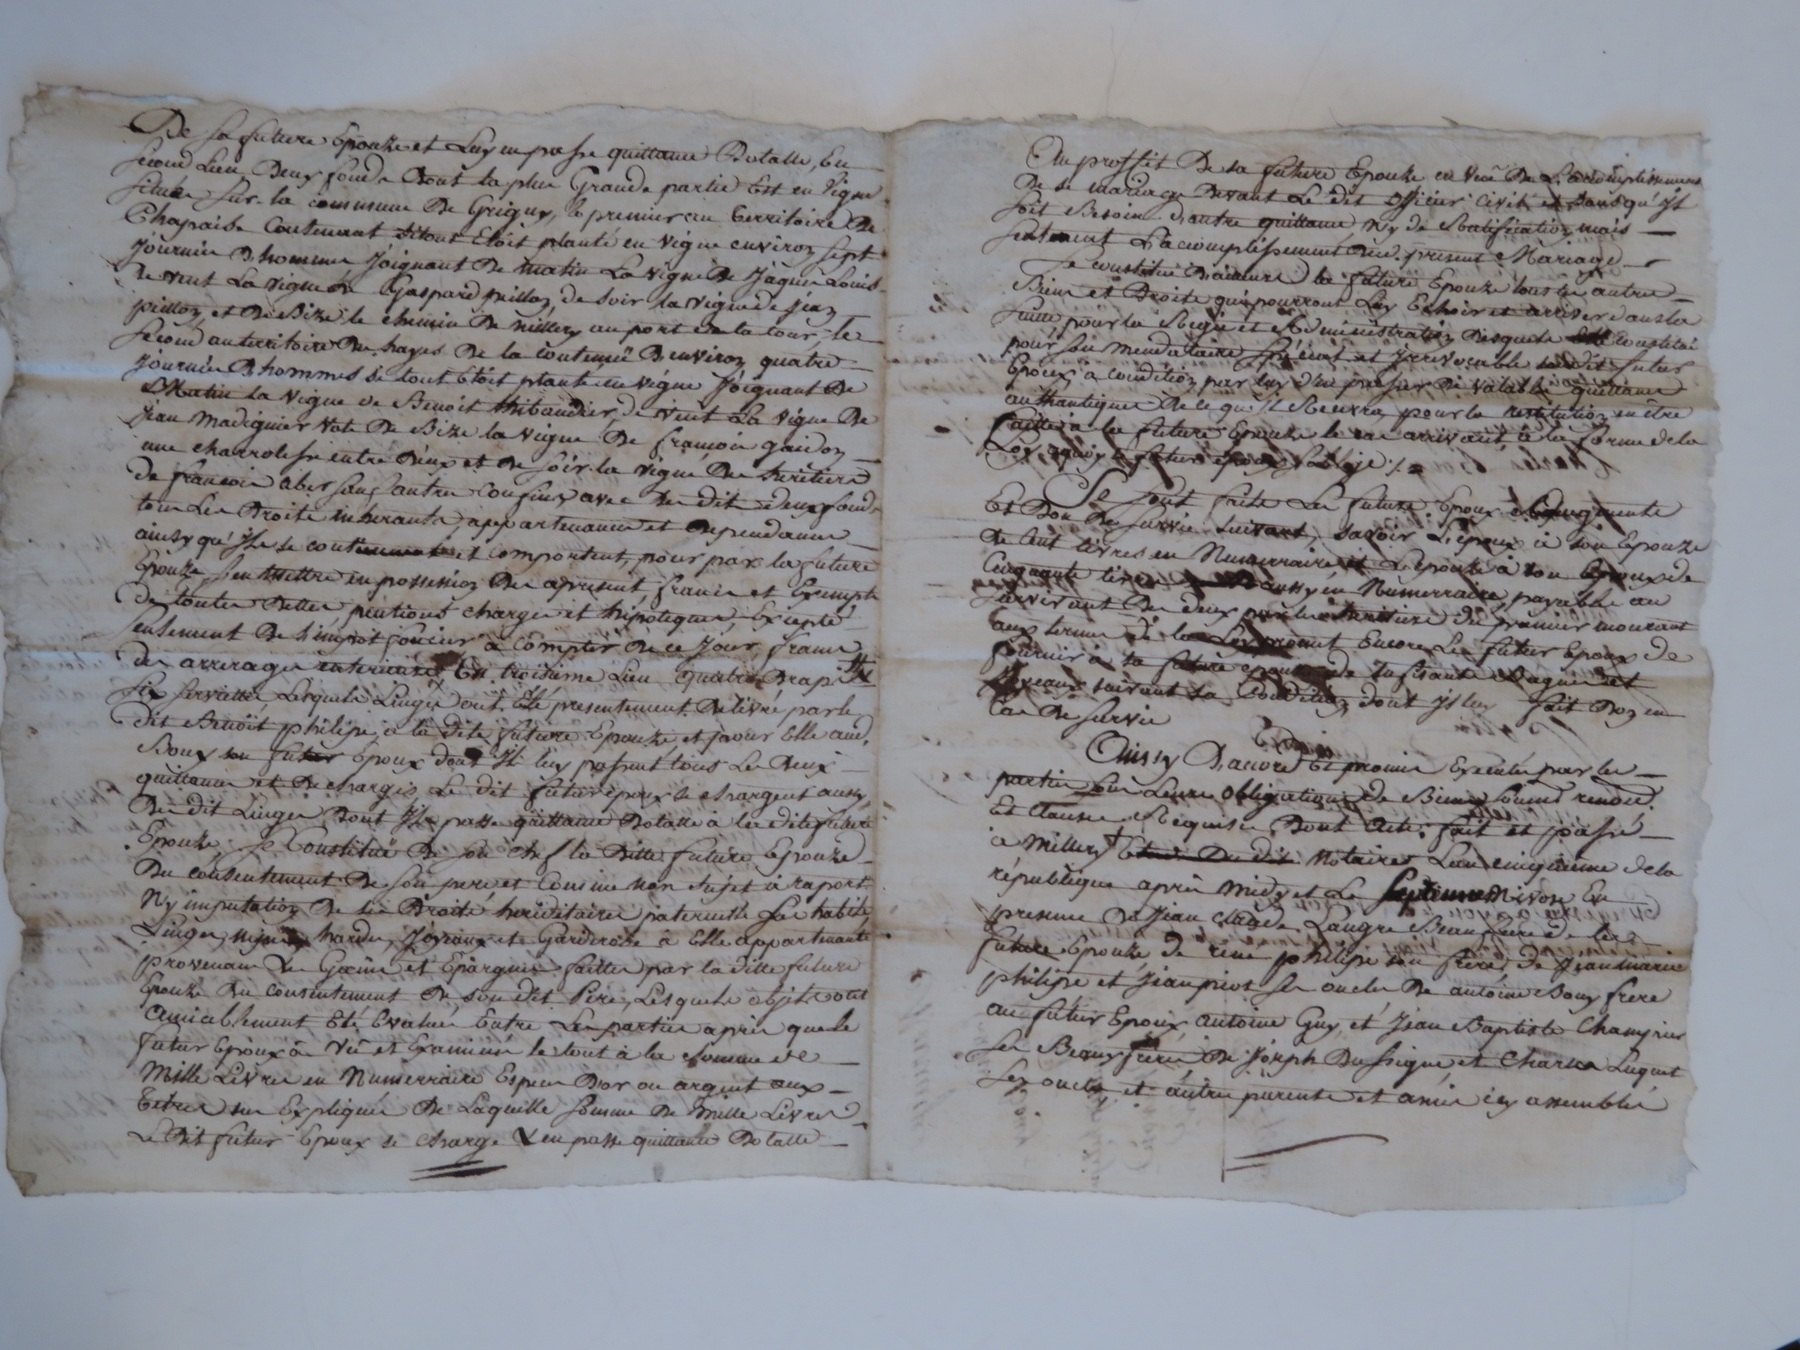 De la future Epouze et Luy en passe quittance Dotalle, En
second Lieu Deux fonds Dont la plus Grande partie Est en Vigne
située sur la commune De Grigny, le premier au territoire De
Chapaise Contenant si tout Etoit planté en vigne environ sept
Journée D'hommes Joignant De matin La vigne De Jaques Louis
de vent La vigne de Gaspard pillion, de soir la vigne de Jean
pillion, et De Bize le chemin De millery au port de la tour, le
second au territoire Des hayes De la Contenue D'environ quatre
Journée D'hommes si tout Etoit planté en vigne Joignant De
Matin La vigne de Benoit thibaudier, de vent La vigne De
Jean Madignier De Bize la vigne De françois gaidon
une charrolesse entre Deux et De soir la vigne Des heritiers
de françois sauf autre Confins, avec Les dit deux fonds
tous Les Droits inherants, appartenances et Dependances
ainsy qu'Ils se contiennent et comportent, pour par la future
Epouze, s'en mettre en possession Des apresent, francs et Exempts
de toutes Dettes pentions charges et hipoteques, Excepté
seulement De L'impot foncier à compter De ce Jour, francs
des arrerages anterieurs En troisieme Lieu quatre Draps Et
six serviettes Lesquels Linges ont Eté presentement Delivré par le
Dit Benoit philipe, à la dite future Epouze, et pour Elle aud.
Bouy son futur Epoux dont Il luy passent tous Les Deux
quittance et Decharges Le dit futur Epoux se chargent aussy
Des dit Linges Dont Il passe quittance Dotalle à la dite future
Epouze, Se Constitue De son Chef la Ditte future Epouze
Du consentement De son pere et Comme non Sujet à raport
Ny imputation De ses Droits hereditaires paternelle Les habits
Linges, hardes, Joyeaux et Garderobe à Elle appartenants
provenant De Gains et Epargnes faittes par la ditte future
Epouze Du consentement De son dit Pere, Lesquels objets ont
amiablement Eté Evalués Entre Les parties après que le
futur Epoux à Vû et Examiné le tout à la somme de
Mille Livres en Numerraire Especes D'or ou argent aux
titres sus Expliqués De Laquelle Somme De mille Livres
Le Dit futur Epoux se charge & en passe quittance Dotalle
Au proffit De sa future Epouze en Vue De L'accomplissement
De se mariage Devant Le dit officier civil et sans qu'Il
soit Besoin d'autre quittance Ny de Ratification mais
seulement L'acomplissement Du present Mariage
Se constitue D'ailleurs la future Epouze tous les autres
Biens et Droits qui pourront Luy Echoir et arriver dans la
suitte, pour la Regie et Administration Desquels Elle Constitue
pour son mendataire special et Irrevocable le dit futur
Epoux à condition par luy d'en passer De valable quittance
authantiques De ce qu'Il Recevra, pour la restitution en être
faitte à la future Epouze le cas arrivant à la forme de la
Loy, à quoy le futur epoux s'oblige ./.
Se sont faits Les future Epoux Augments
Et Don De survie suivant, savoir L'epoux à son Epouze
De Cent livres en Numerraire et L'epouze à son Epoux de
Cinquante livres aussy en Numerraire, payable au
survivant Des deux par les heritiers du premier mourant
aux termes de la Loy promet Encore Le futur Epoux de
fournir à sa future epouze de Bagues et
Joyeaux suivant sa Condition, dont Il luy fait Don en
Cas De survie
Ainssy D'accord Et promis Executer par les
parties sous Leurs obligations de Biens
Et Clauses Requises Dont Acte; fait et passé
à Millery Etude Du dit Notaires L'an cinquieme de la
république après midy et Le Septieme Nivose En
presence De Jean Claude Langre Beau frere de la
future Epouze, de philipe son frere, de Jean marie
philipe et Jean pirot ses oncles De antoine Bouy frere
au futur Epoux antoine Guy, et Jean Baptiste Champier
ses Beaux freres De Joseph et Charles Luquet
Ses oncles, et autres parents et amis icy assemblés